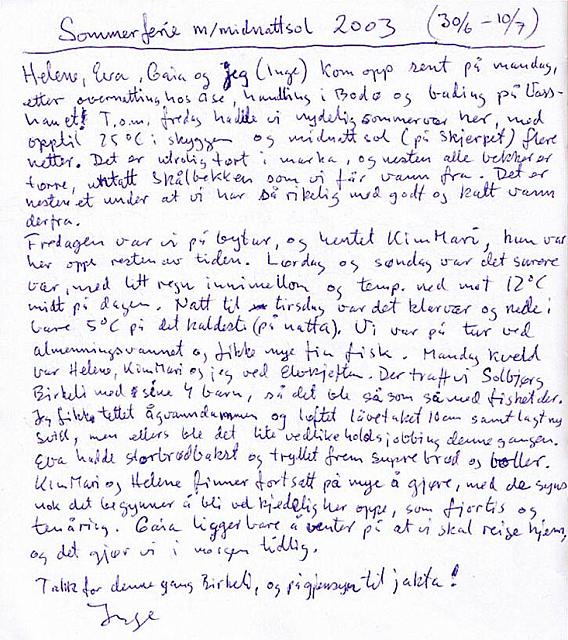 Sommerferie m/midnattsol 2003 (30/6 - 10/7)
Helene, Eva, Gaia og jeg (Inge) kom opp sent på mandag,
etter overnatting hos Åse, handling i Bodø og bading på Vass-
havet! T.o.m. fredag hadde vi nydelig sommervær her, med
opptil 25°C i skyggen og midnattsol (på skjerpet) flere
netter. Det er utrolig tørt i marka, og nesten alle bekker er
tørre, untatt Skålbekken som vi får vann fra. Det er
nesten et under at vi har så rikelig med godt og kaldt vann
derfra.
Fredagen var vi på bytur, og hentet Kim Mari, hun var
her oppe resten av tiden. Lørdag og søndag var det surere
vær, med litt regn innimellom og temp. ned mot 12°C
midt på dagen. Natt til tirsdag var det klarvær og nede i
bare 5°C på det kaldeste (på natta). Vi var på tur ved
almenningsvannet og fikk mye fin fisk. Mandag kveld
var Helene, KimMari og jeg ved Elvkjeften. Der traff vi Solbjørg
Birkeli med sine 4 barn, så det ble så som så med fisket der.
Jeg fikk tettet dammen og løftet låvetaket 10cm samt lagt ny
svill, men ellers ble det lite vedlikeholdsjobbing denne gangen.
Eva hadde storbrødbakst og tryllet frem supre brød og boller.
KimMari og Helene finner fortsatt på mye å gjøre, med de syns
nok det begynner å bli vel kjedelig her oppe, som fjortis og
tenåring. Gaia ligger bare å venter på at vi skal reise hjem,
og det gjør vi i morgen tidlig.
Takk for denne gang Birkeli, og på gjensyn til jakta!
Inge